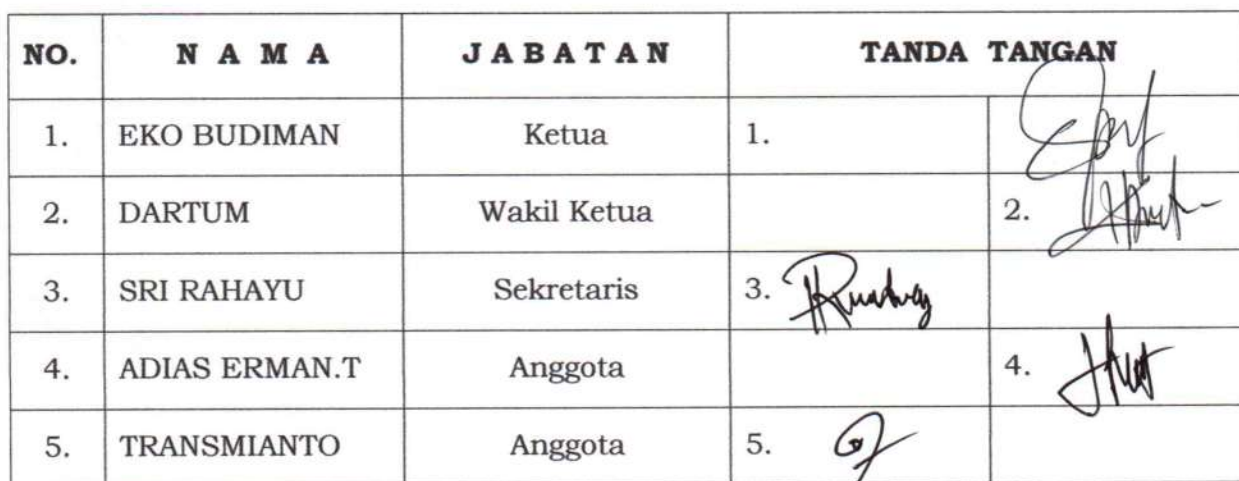 NO. N A M A J A B A T A N TANDA TANGAN
1. EKO BUDIMAN Ketua 1.
2. DARTUM Wakil Ketua 2.
3. SRI RAHAYU Sekretaris 3.
4. ADIAS ERMAN.T Anggota 4.
5. TRANSMIANTO Anggota 5.